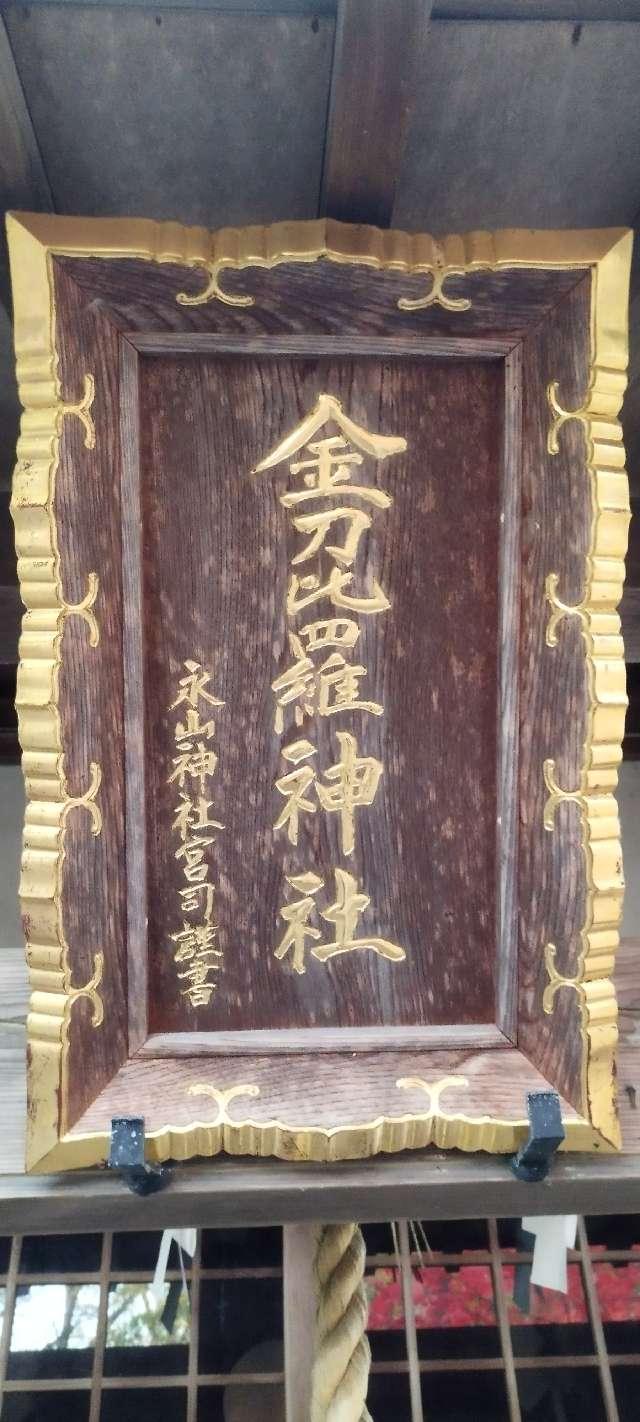 金刀比羅神社
永山神社宮司謹書